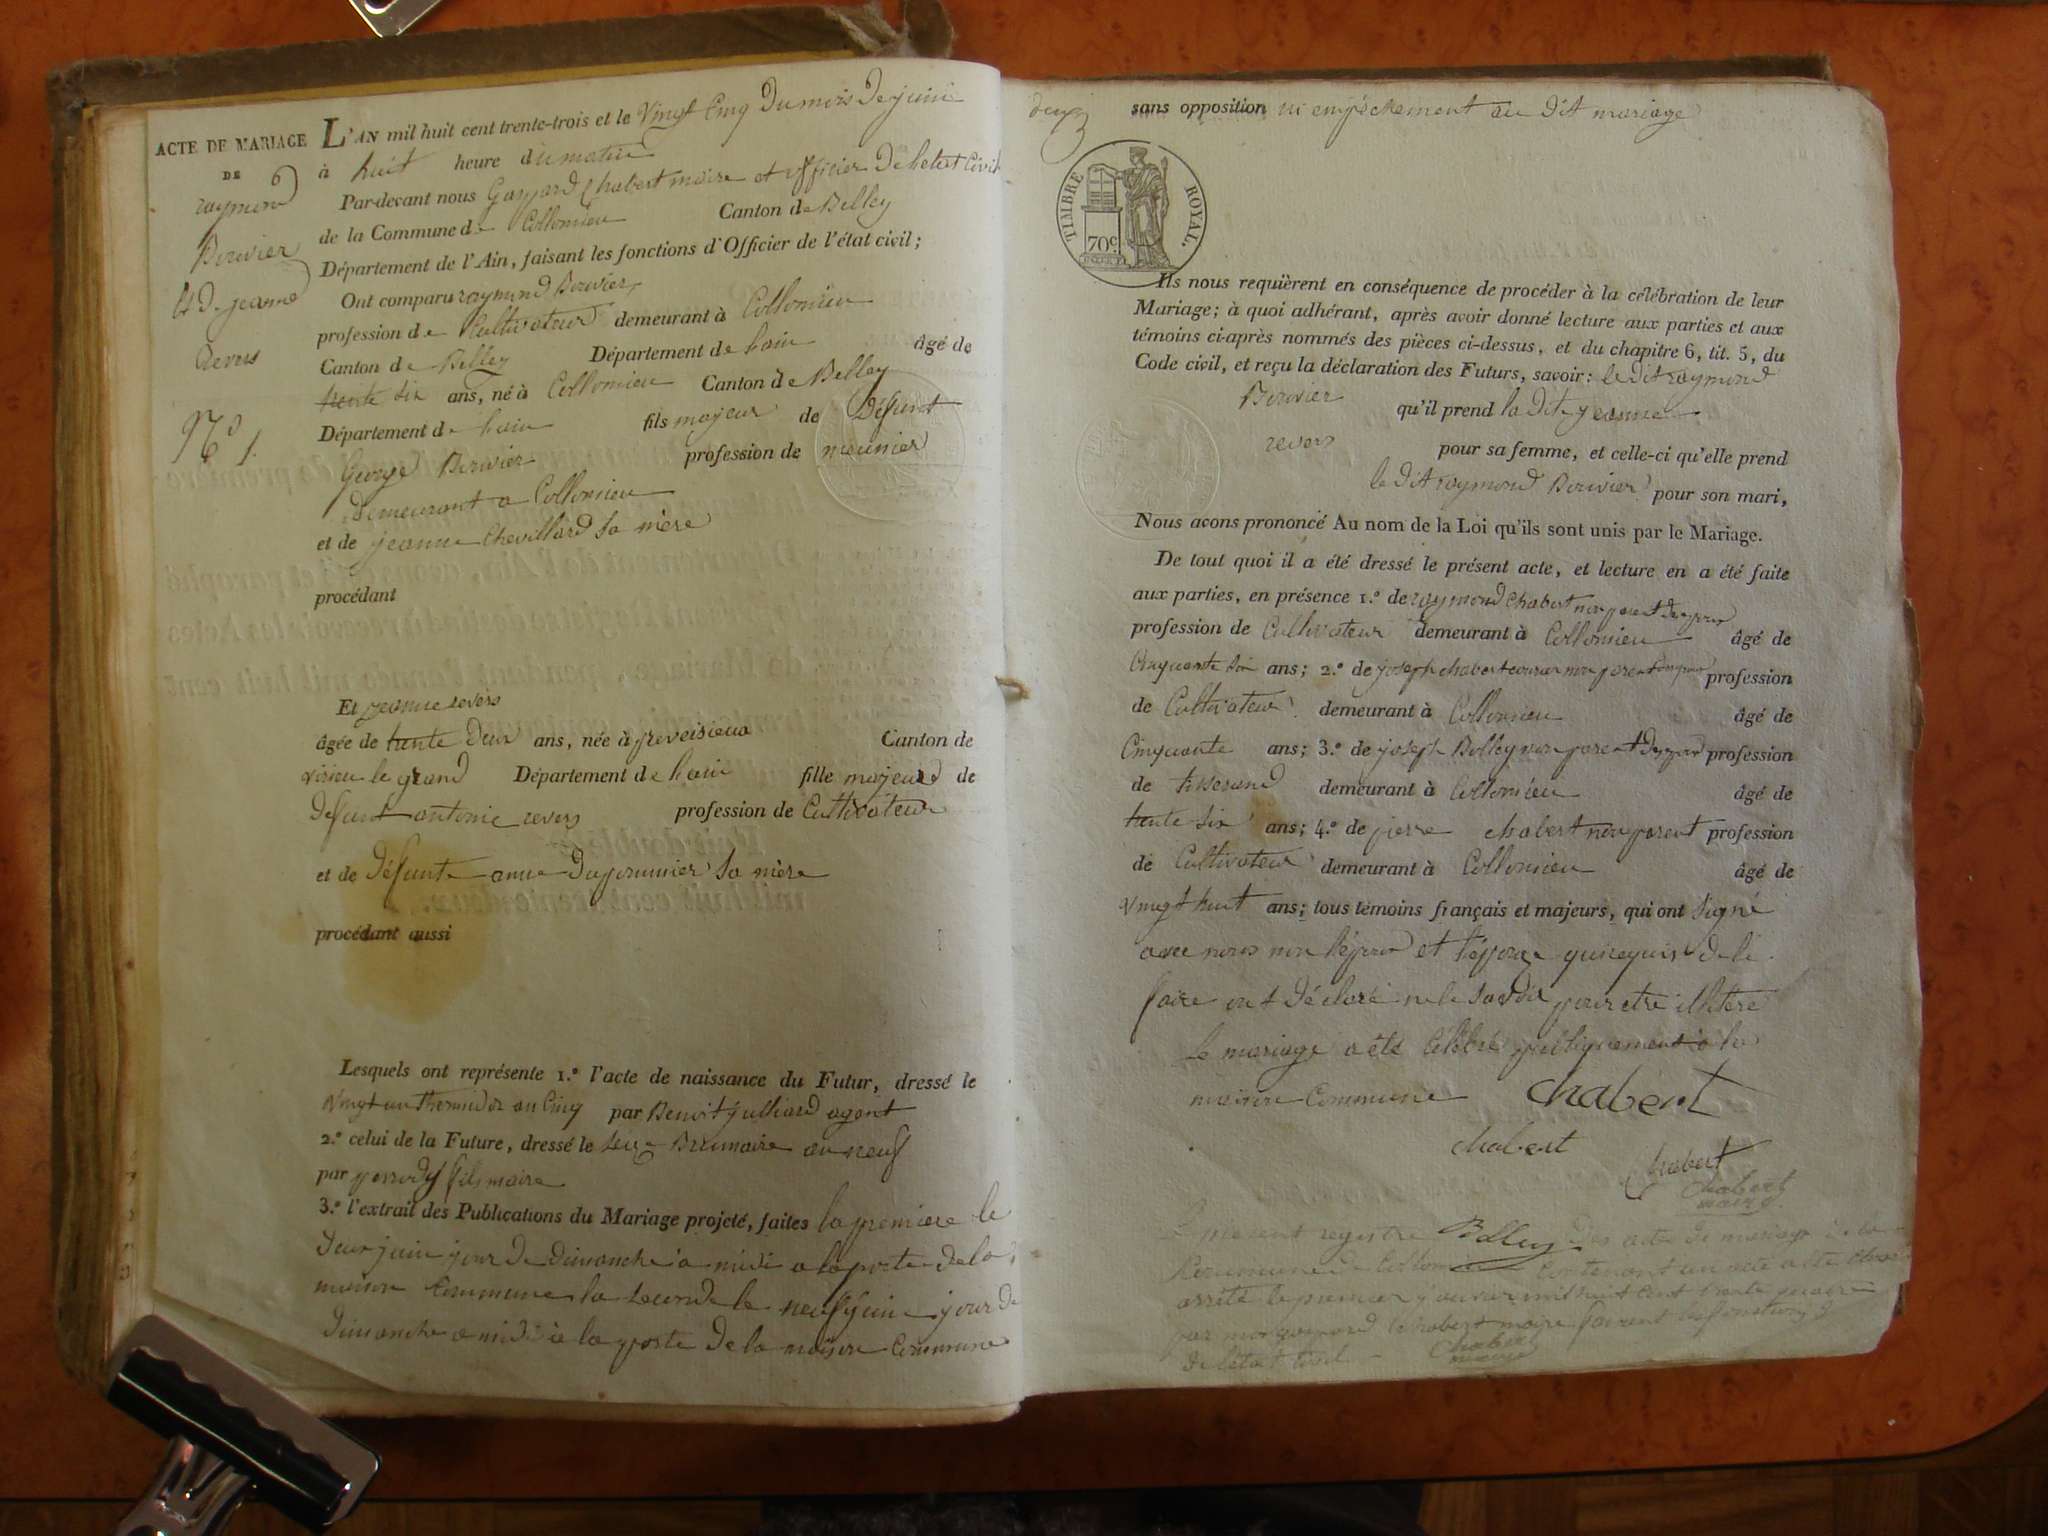 ACTE DE MARIAGE
DE
raymond
Berivier
et D. jeanne
revers
N.º 1.
L'AN mil huit cent trente-trois et le vingt Cinq Du mois De juin
à huit heure du matin
Par-devant nous Gaspard Chabert maire et officier De letat Civil
de la Commune de Collomieu Canton de Belley
Département de l'Ain, faisant les fonctions d'Officier de l'état civil;
Ont comparu raymond Berivier
profession de Cultivateur demeurant à Collomieu
Canton de Belley Département de lain âgé de
trente six ans, né à Collomieu Canton de Belley
Département de lain fils majeur de Défunt
George Berivier profession de meunier
demeurant a Collomieu
et de jeanne Chevillard sa mère
procédant
Et jeanne revers
âgée de trente Deux ans, née à preveisieux Canton de
virieu le grand Département de lain fille majeure de
Defunt antoine revers profession de Cultivateur
et de défunte anne Dupommier sa mère
procédant aussi
Lesquels ont représenté 1.º l'acte de naissance du Futur, dressé le
vingt un Thermidor an Cinq par Benoit julliard agent
2.º celui de la Future, dressé le seize Brumaire an neuf
par fils maire
3.º l'extrait des Publications du Mariage projeté, faites la premiere le
deux juin jour de Dimanche a midi a la porte De la
maison Commune la seconde le neuf juin jour de
Dimanche a midi a la porte De la maison Commune
deux
sans opposition ni empêchement au Dit mariage
TIMBRE ROYAL.
70 c.
Ils nous requièrent en conséquence de procéder à la célébration de leur
Mariage; à quoi adhérant, après avoir donné lecture aux parties et aux
témoins ci-après nommés des pièces ci-dessus, et du chapitre 6, tit. 5, du
Code civil, et reçu la déclaration des Futurs, savoir: le dit raymond
Berivier qu'il prend la Dite jeanne
revers pour sa femme, et celle-ci qu'elle prend
le Dit raymond Berivier pour son mari,
Nous avons prononcé Au nom de la Loi qu'ils sont unis par le Mariage.
De tout quoi il a été dressé le présent acte, et lecture en a été faite
aux parties, en présence 1.º de raymond Chabert non parent
profession de Cultivateur demeurant à Collomieu âgé de
Cinquante six ans; 2.º de joseph chabert non parent profession
de Cultivateur demeurant à Collomieu âgé de
Cinquante ans; 3.º de joseph Bolley non parent profession
de tisserand demeurant à Collomieu âgé de
trente six ans; 4.º de pierre chabert non parent profession
de Cultivateur demeurant à Collomieu âgé de
vingt huit ans; tous témoins français et majeurs, qui ont signé
avec nous non l'époux et l'épouse qui requis de le
faire ont déclaré ne le savoir pour etre illiteré
Le mariage a été célébré publiquement a la
maison Commune Chabert
Chabert
Chabert
Chabert
maire
Le present registre Bolley Des acte De mariage de la
Commune de Collomieu Contenant un acte a été Clos
arrêté le premier janvier mil huit Cent trente quatre
par moi gaspard Chabert maire faisant les fonctions
de l'état Civil
Chabert
maire